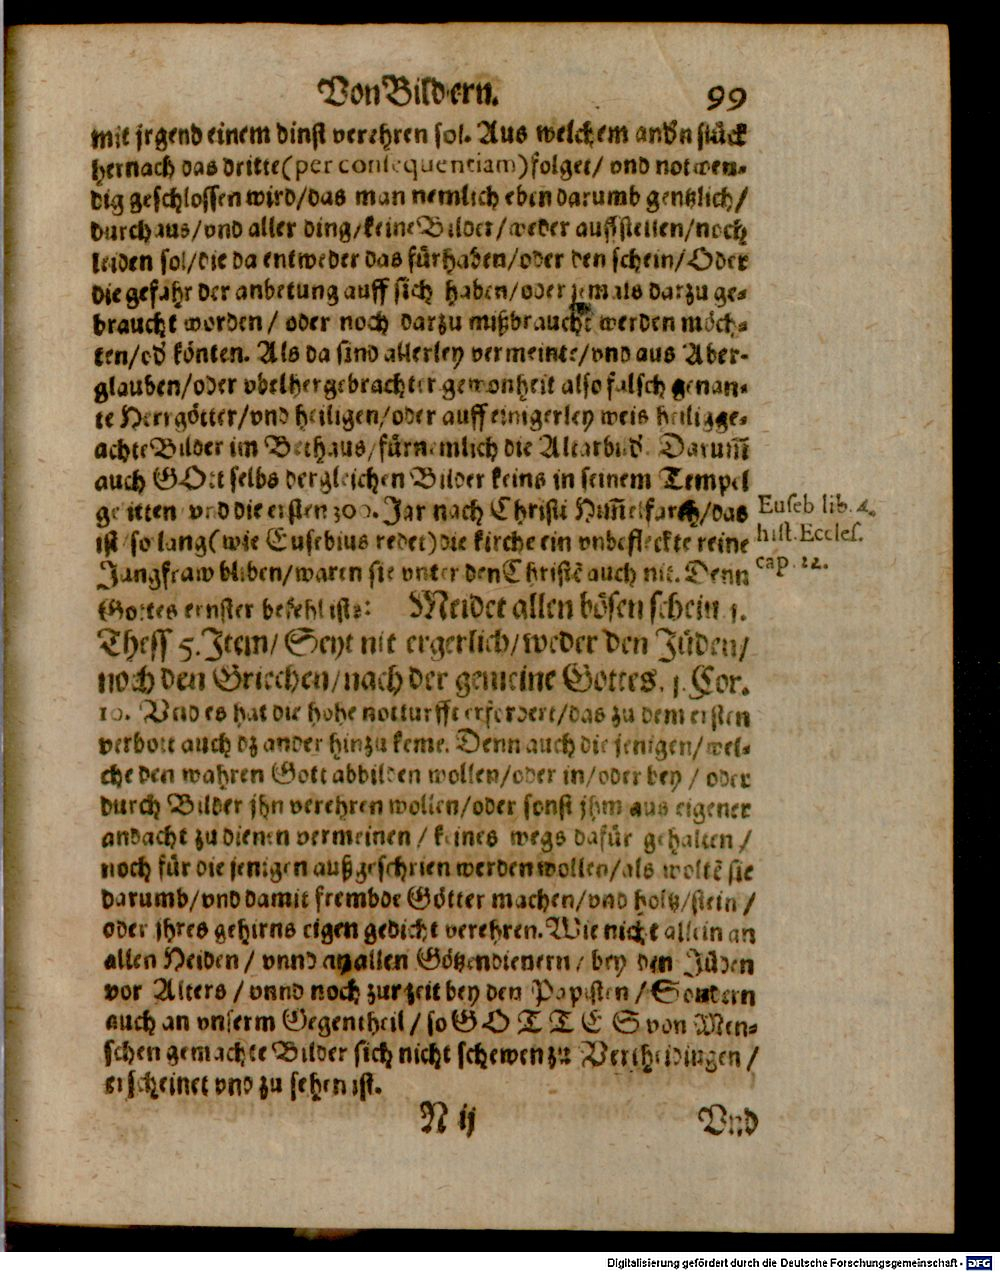 Von Bildern. 99
mit jrgend einem dinst verehren sol. Aus welchem andn stück
hernach das dritte (per consequentiam) folget/ vnd notwen-
dig geschlossen wird/das man nemlich eben darumb gentzlich/
durchaus/vnd aller ding/keine Bilder/weder auffstellen/noch
leiden sol/die da entweder das fürhaben/oder den schein/Oder
die gefahr der anbetung auff sich haben/oder jemals darzu ge-
braucht worden/ oder noch darzu mißbraucht werden möch-
ten/od könten. Als da sind allerley vermeinte/vnd aus Aber-
glauben/oder vbelhergebrachter gewonheit also falsch genan-
te Herrgötter/vnd heiligen/oder auff einigerley weis heilig ge-
achte Bilder im Bethaus/fürnemlich die Altarbild. Darum̃
auch GOtt selbs dergleichen Bilder keins in seinem Tempel
gelitten vnd die ersten 300. Jar nach Christi Him̃elfarth/das
ist so lang (wie Eusebius redet) die kirche ein vnbefleckte reine
Jungfraw bliben/waren sie vnter den Christẽ auch nit. Denn
Gottes ernster befehl ists: Meidet allen bösen schein 1.
Thess 5. Item/ Seyt nit ergerlich/weder den Jüden/
noch den Griechen/nach der gemeine Gottes. 1. Cor.
10. Vnd es hat die hohe notturfft erfordert/das zu dem ersten
verbott auch dz ander hinzu keme. Denn auch die jenigen/wel-
che den wahren Gott abbilden wollen/oder in/oder bey/ oder
durch Bilder jhn verehren wollen/oder sonst jhm aus eigener
andacht zu dienen vermeinen/ keines wegs dafür gehalten/
noch für die jenigen außgeschrien werden wollen/als woltẽ sie
darumb/vnd damit frembde Götter machen/vnd holtz/stein/
oder jhres gehirns eigen gedicht verehren. Wie nicht allein an
allen Heiden/ vnnd an allen Götzendienern/ bey den Jüden
vor Alters/ vnnd noch zur zeit bey den Papisten/ Sondern
auch an vnserm Gegentheil/ so GOTTES von Men-
schen gemachte Bilder sich nicht schewen zu Vertheidingen/
erscheinet vnd zu sehen ist.
Euseb lib. 4.
hist. Eccles.
cap. 22.
N ij Vnd
Digitalisierung gefördert durch die Deutsche Forschungsgemeinschaft - DFG